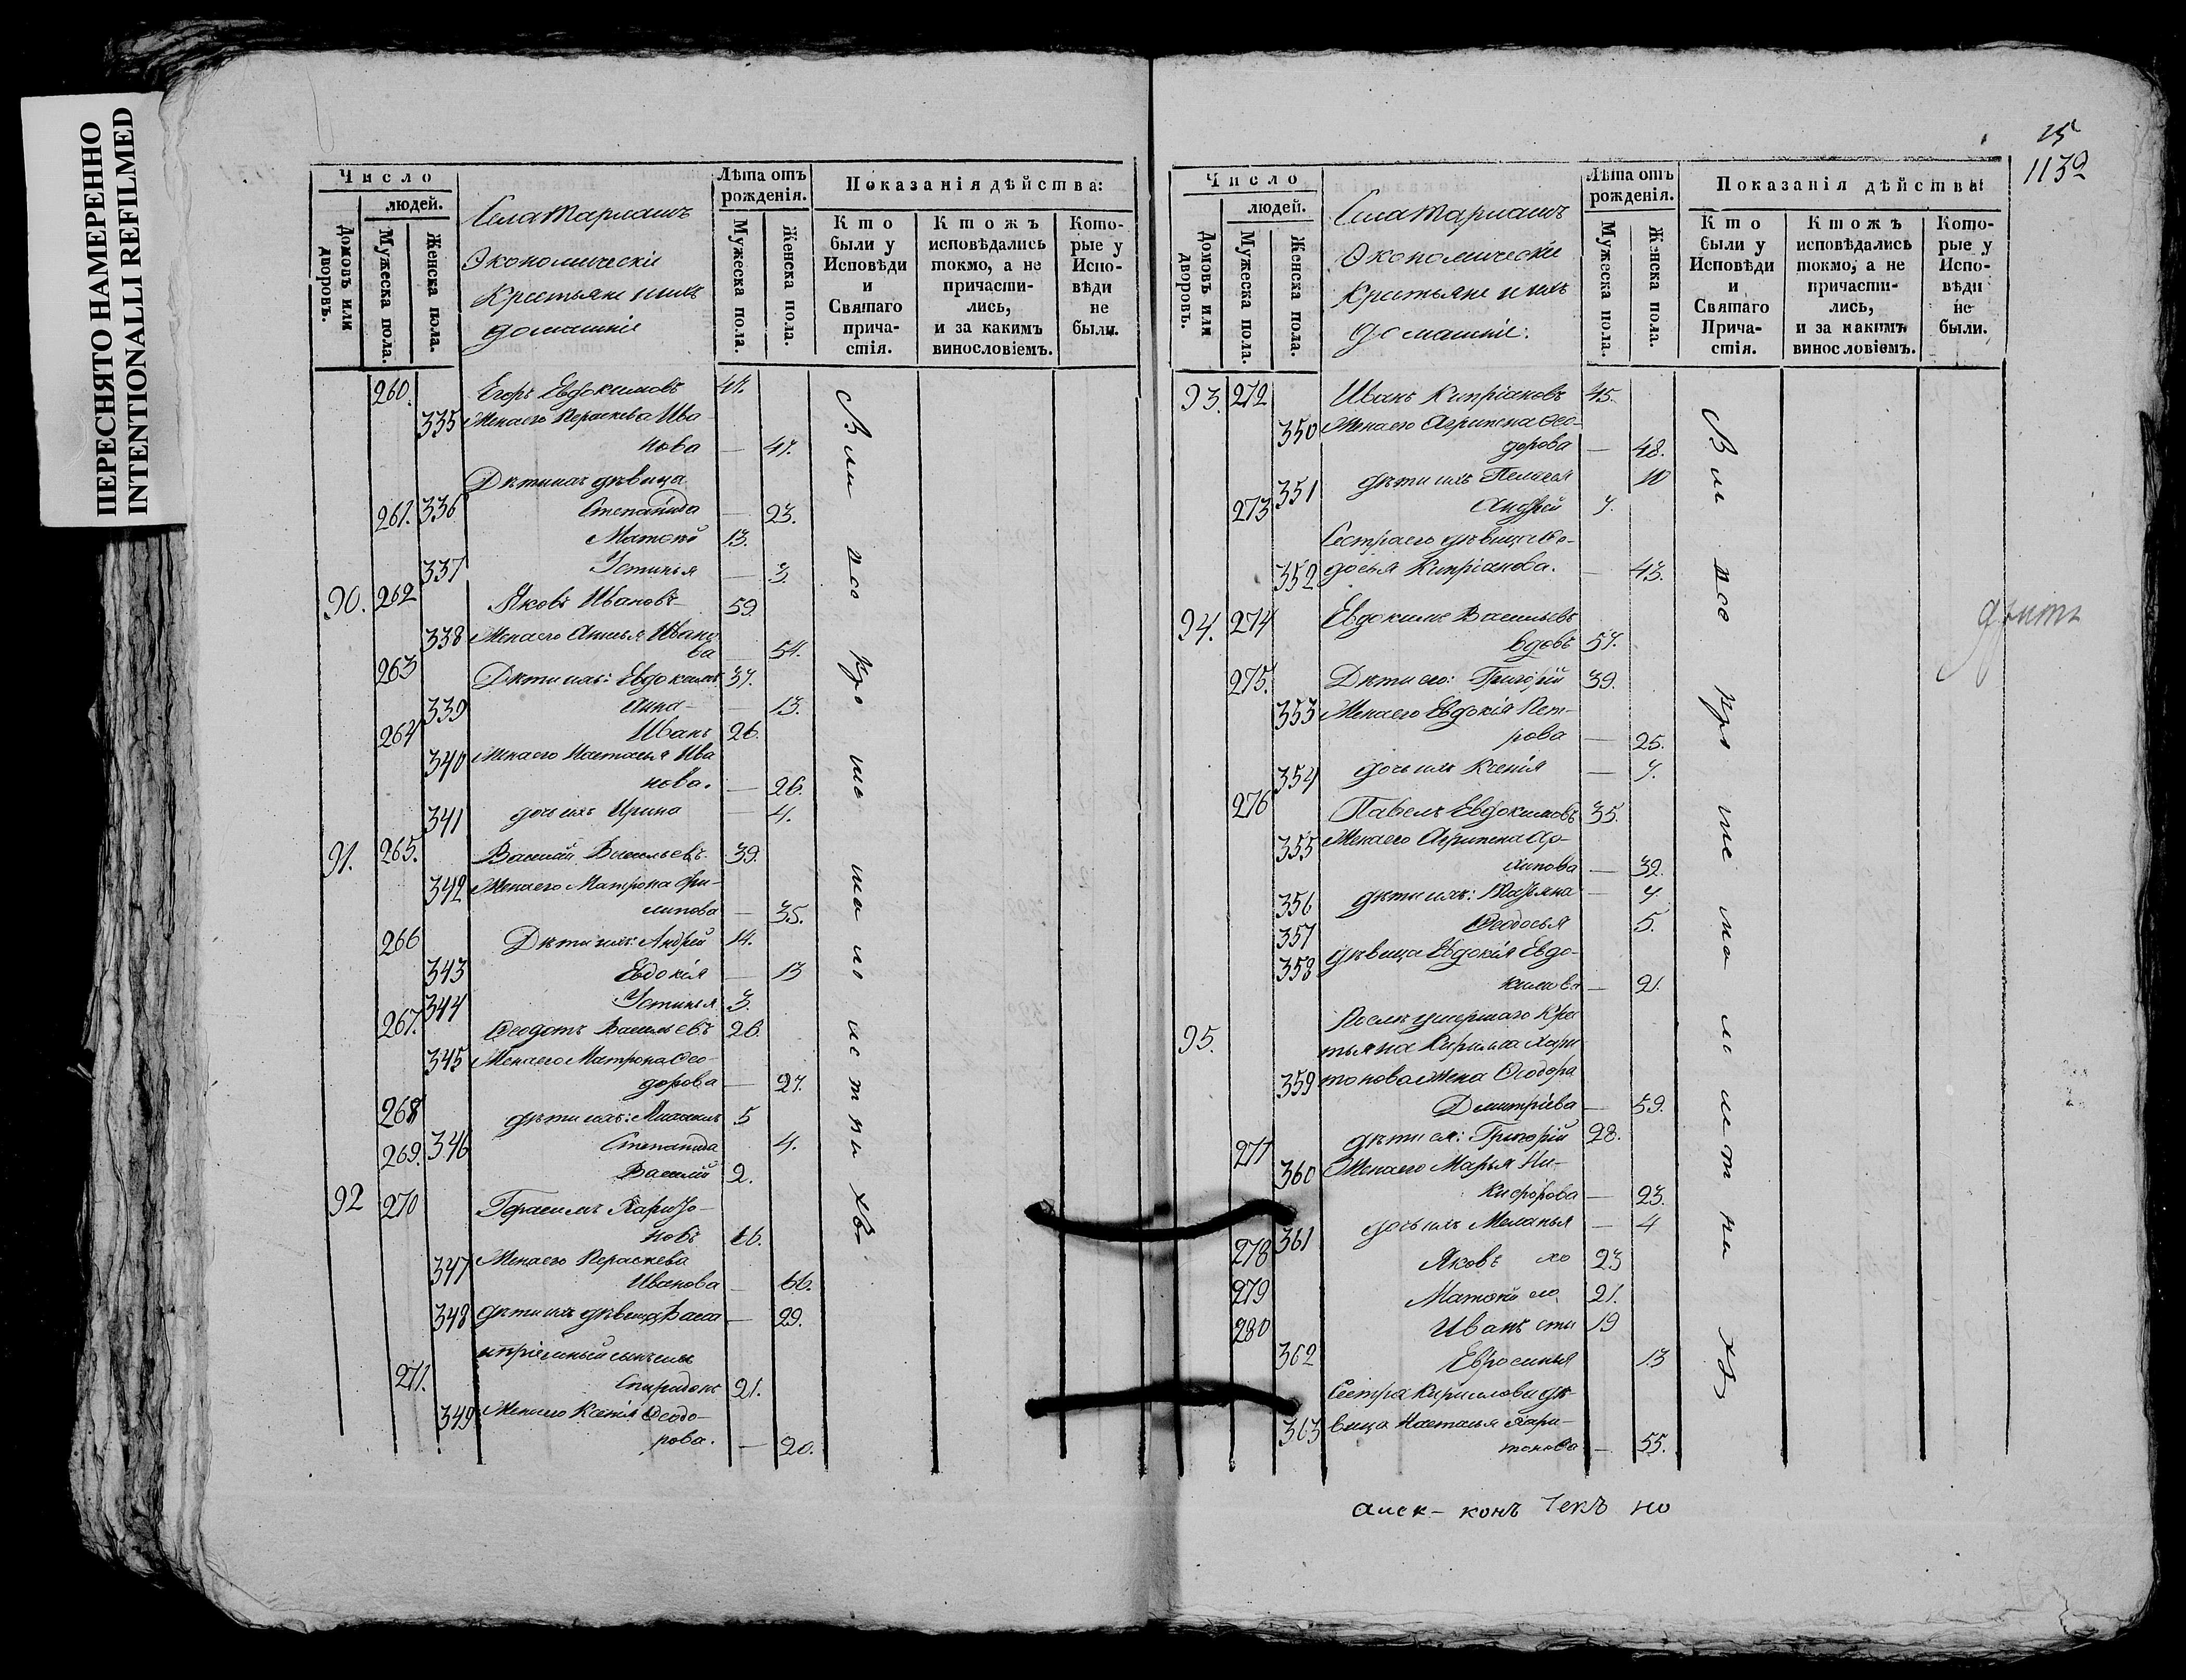 ПЕРЕСНЯТО НАМЕРЕННО
INTENTIONALLI REFILMED
Число
людей.
Домовъ или дворовъ.
Мужеска пола.
Женска пола.
Села
Экономическіе
Крестьяне и ихъ
домашніе
Лѣта отъ рожденія.
Мужеска пола.
Женска пола.
Показанія дѣйства:
Кто были у Исповѣди и Святаго причастія.
Ктожъ исповѣдались токмо, а не причастились, и за какимъ винословіемъ.
Которые у Исповѣди не были.
260. Егоръ Евдокимовъ
335 Жена его Параскева Ива
нова — 47.
Дѣти ихъ девица
261. 336 Степанида — 23.
Матвѣй 13.
337 Устинья — 3
90. 262 Яковъ Ивановъ 59.
338 Жена его Ивано
ва — 54.
263 Дѣти ихъ: Евдокимъ 37.
339 Анна — 13.
264 Иванъ 26.
340 жена его Настасья Ива
нова. — 26.
341 дочь ихъ Ирина — 4.
91. 265. Василий Васильевъ 39.
342 Жена его Матрона Фи-
липова — 35.
266 Дѣти ихъ: Андрей 14.
343 Евдокія — 13
344 Устинья 3.
267. Ѳеодотъ Васильевъ 26.
345 Жена его Матрона Ѳео-
дорова — 27.
268 дѣти ихъ: 5
269. 346 Степанида 4.
Василій 2.
92 270 Герасимъ Харито-
новъ 66.
347 Жена его Параскева
Иванова — 66.
348 дѣти ихъ девица Васса — 29.
и пріемный сынъ ихъ
271. Спиридонъ 21.
349 Жена его Ксенія Ѳеодо-
рова. — 20.
15
1139
Число
людей.
Домовъ или дворовъ.
Мужеска пола.
Женска пола.
Села
Экономическіе
Крестьяне и ихъ
домашніе:
Лѣта отъ рожденія.
Мужеска пола.
Женска пола.
Показанія дѣйства:
Кто были у Исповѣди и Святаго Причастія.
Ктожъ исповѣдались токмо, а не причастились, и за какимъ винословіемъ.
Которые у Исповѣди не были.
93. 272 Иванъ Кипріановъ 45.
350 Жена его Агрипена Ѳео-
дорова — 48.
351 дѣти ихъ Пелагея 10
273 Андрей 7.
Сестра его девица Ѳео-
352 досья Кипріанова. — 43.
94. 274 Евдокимъ Васильевъ
вдовъ 57.
275. Дѣти его: Григорій 39.
353 Жена его Евдокія Пет-
рова — 25.
354 дочь ихъ Ксенія — 7.
276 Павелъ Евдокимовъ 35.
355 Жена его Агрипена Ар-
хипова — 32.
356 дѣти ихъ: Татьяна — 7
357 Ѳеодосья 5.
358 девица Евдокія Евдо-
кимова — 21.
95. Послѣ умершаго Крес
тьяна Кирилла Хари
359 тонова жена Ѳеодора
Дмитріева — 59.
277 дѣти ея: Григорій 28.
360 Жена его Марья Ни-
кифорова — 23.
361 дочь ихъ Меланья — 4
278 Яковъ хо 23
279 Матвѣй ло. 21.
280 Иванъ сты 19
362 Евросинья 13
Сестра Кириллова дѣ-
363 вица Настасья Хари-
тонова — 55.